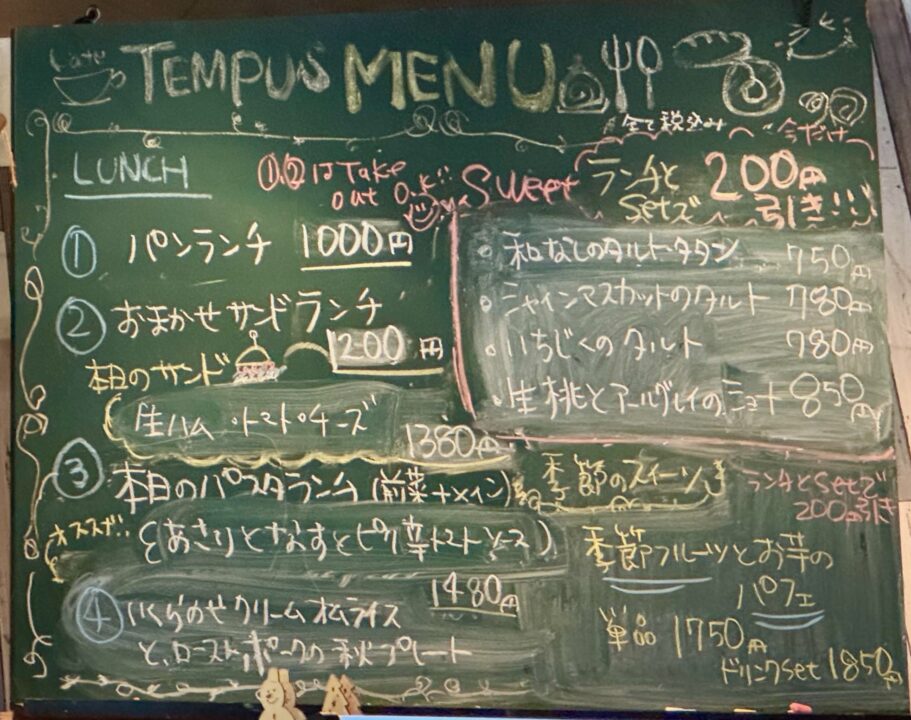 Cafe
TEMPUS MENU
全て税込み
今だけ
LUNCH
①,②はTake
out O.K!!
Sweet
ランチと 200円
setで 引き!!
① パンランチ 1000円
② おまかせサンドランチ
1200円
本日のサンド
生ハム・トマト・チーズ
1380円
③ 本日のパスタランチ (前菜+メイン)
オススメ!!
(あさりとなすとピリ辛トマトソース)
1480円
④ いくらのせクリームオムライス
と、ローストポークの秋プレート
・和なしのタルトタタン 750円
・シャインマスカットのタルト 780円
・いちじくのタルト 780円
・生桃とアールグレイの 850円
季節のスイーツ
ランチとsetで
200円引き
季節フルーツとお芋の
パフェ
単品 1750円
ドリンクset 1850円